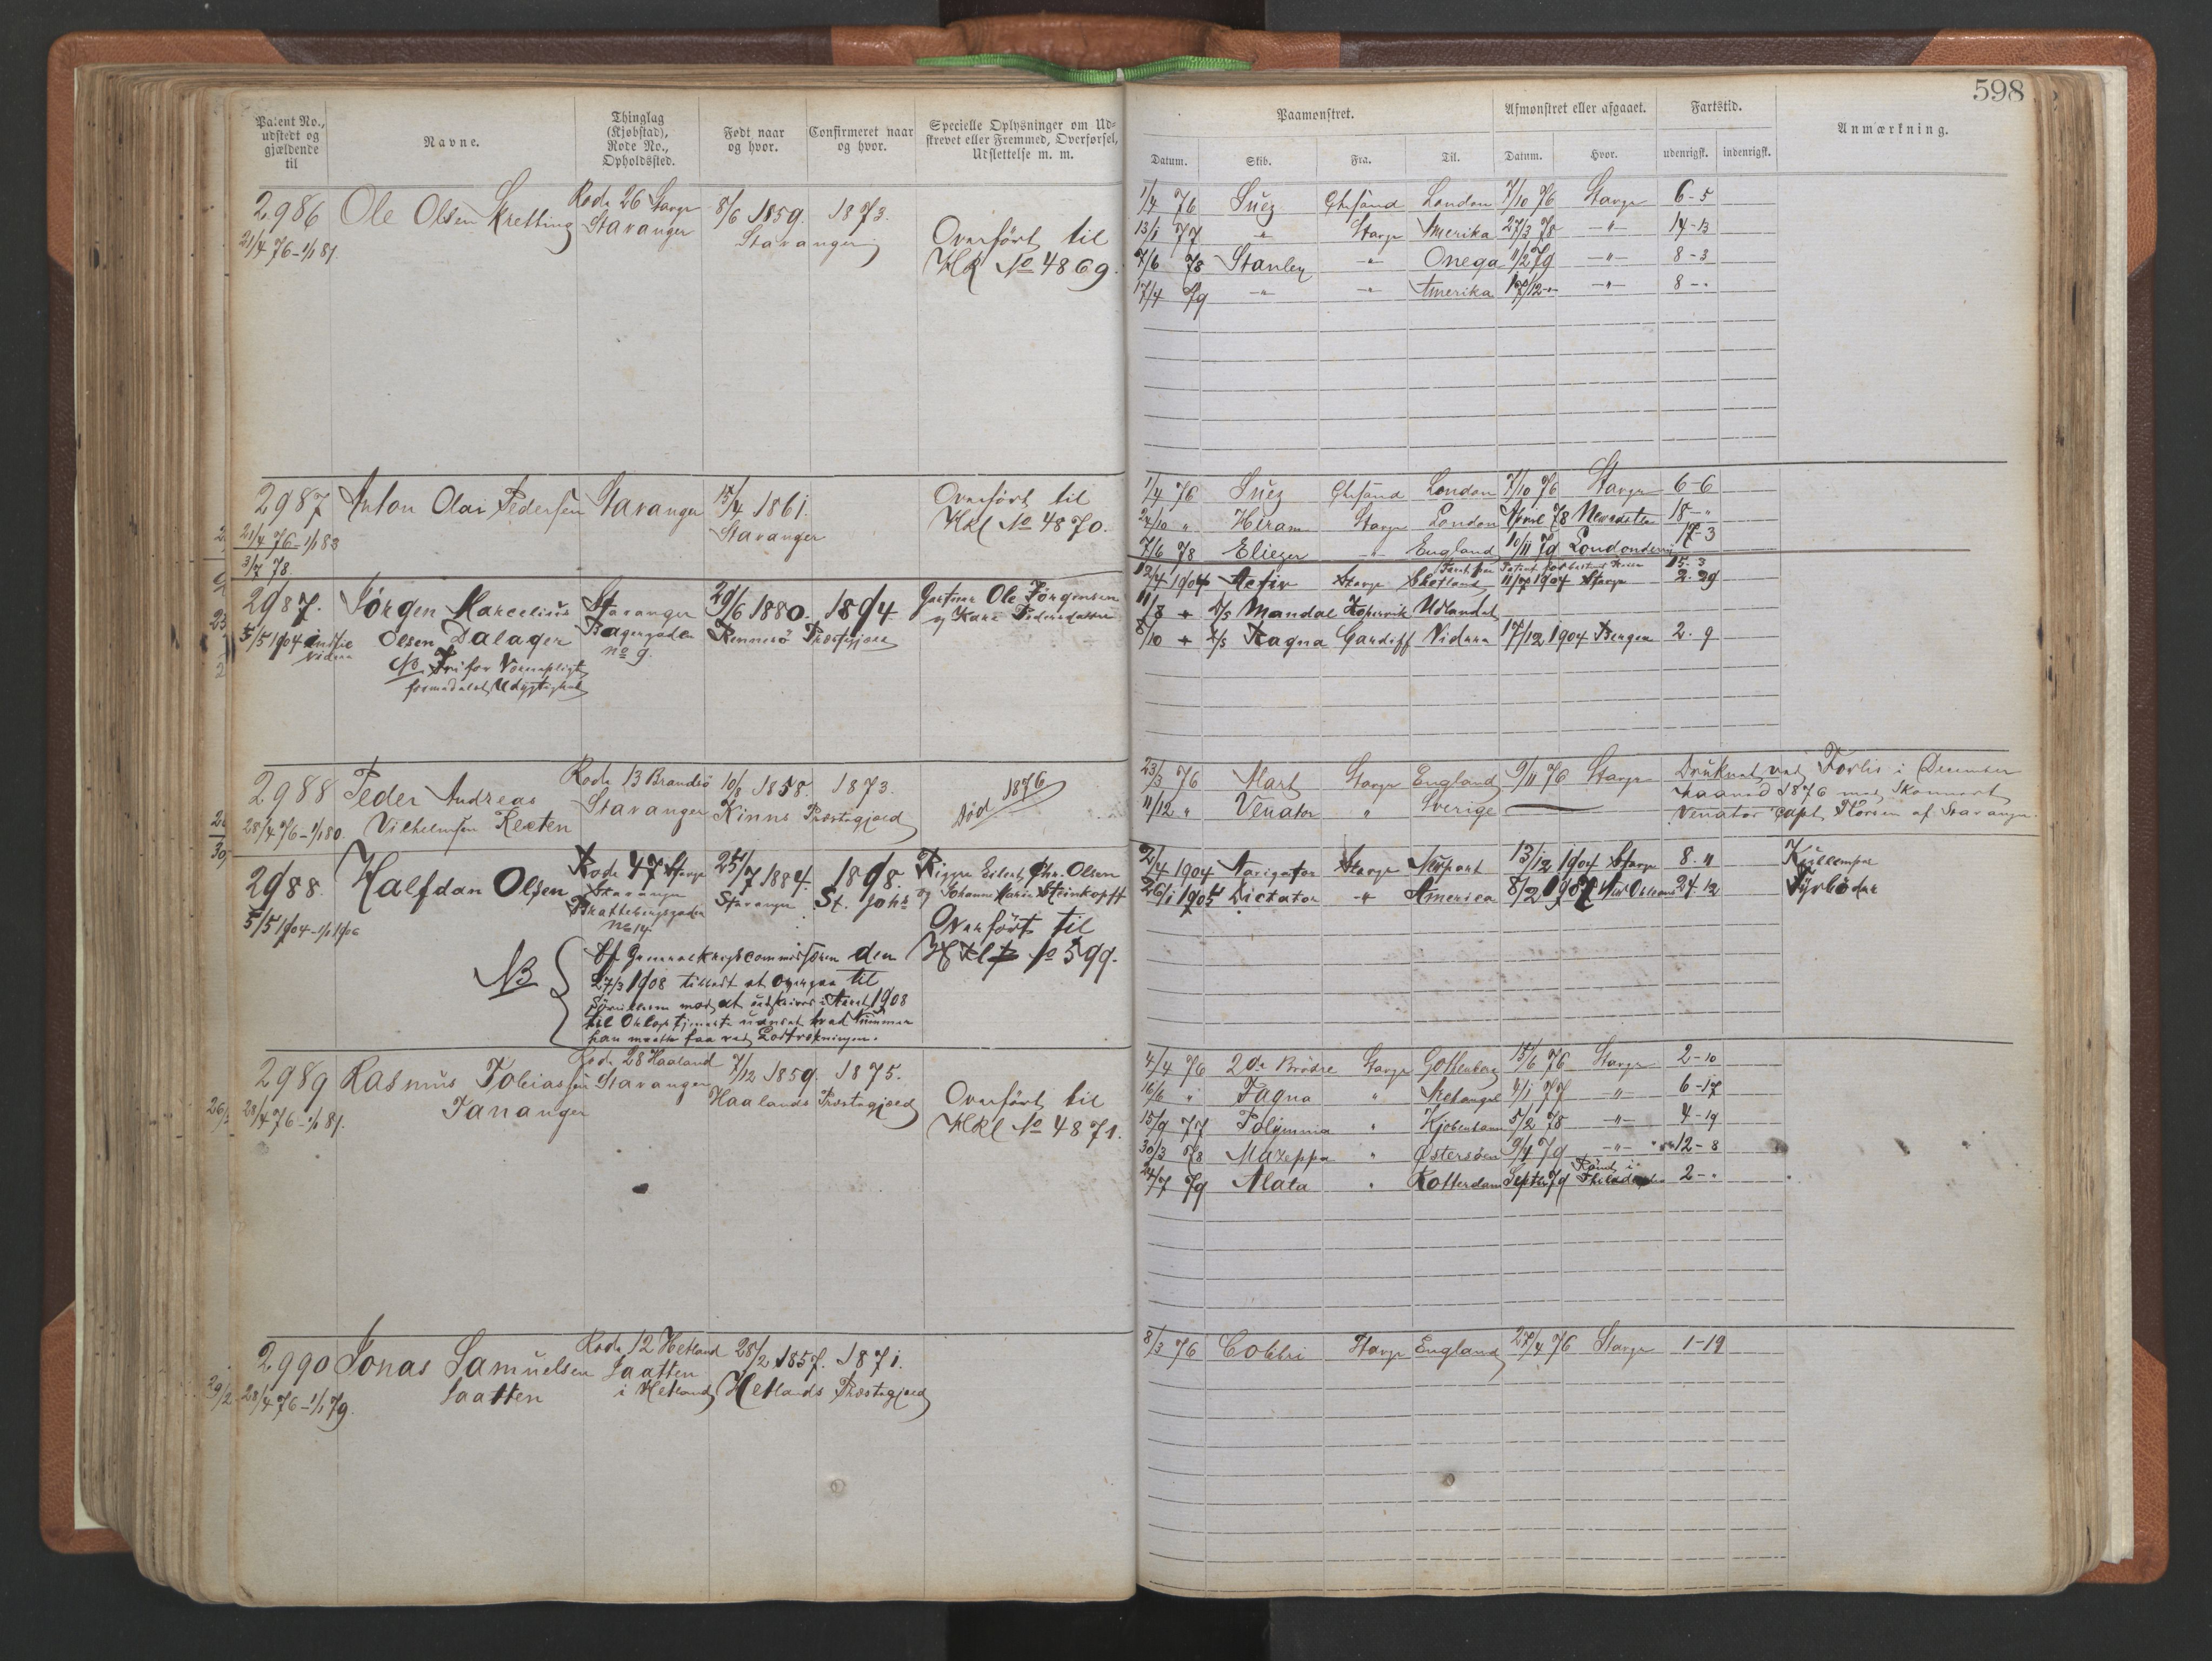 598
Patent No., udstedt og gjældende til
Navne.
Thinglag (Kjøbstad), Rode No., Opholdssted.
Født naar og hvor.
Confirmeret naar og hvor.
Specielle Oplysninger om Udskrevet eller Fremmed, Overførsel, Udslettelse m. m.
Paamønstret.
Afmønstret eller afgaaet.
Fartstid.
Anmærkning.
Datum. Skib. Fra. Til. Datum. Hvor. udenrigsk. indenrigsk.
2986 Ole Olsen Kretting Rode 26 Stavgr 8/6 1859. 1873.
21/4 76 - 1/1 81. Stavanger Stavanger
Overført til
HRl No 4869.
1/4 76 Suez Chrsand London 7/10 76 Stavgr 6-5
13/1 77 " Stavgr Amerika 27/3 78 -"- 14-13
7/6 78 Stanley -"- Onega 11/2 79 -"- 8-3
17/4 79 -"- -"- Amerika 17/12 -"- -"- 8-"
2987 Anton Olai Pedersen Stavanger 15/4 1861.
21/4 76 - 1/1 83 Stavanger
3/7 78.
Overført til
HRl No 4870.
1/4 76 Suez Chrsand London 7/10 76 Stavgr 6-6
24/10 " Hiram Stavgr London April 78 18-"
7/6 78 Eliezer -"- England 10/11 79 Londonderry 17-3
2987. Jørgen Marcelius Stavanger 29/6 1880. 1894 Gartner Ole Jørgensen
5/5 1904 indtil videre Olsen Dalager Bagergaden no 9. Rennesø Præstegjæld og Kare Pedersdatter
NB Fri for Værnepligt
formedelst Udygtighed
12/4 1904 Activ Stavgr Shetland 11/7 1904 Stavgr 2. 29
11/8 + D/S Mandal Kopervik Udlandet
8/10 + D/S Ragna Cardiff Vidare 17/12 1904 Bergen 2. 9
2988 Peder Andreas Rode 13 Brandsø 10/8 1858. 1873.
28/4 76 - 1/1 80. Vilhelmsen Reeten Stavanger Kinns Præstegjæld
Død 1876
23/3 76 Mart Stavgr England 9/11 76 Stavgr Druknet ved Forlis i December
11/12 " Venator " Sverige Maaned 1876 med Skonnert
Venator Capt. af Stavanger.
2988. Halfdan Olsen Rode 47 Stavgr 25/7 1884. 1898. Rigger Eilert Chr. Olsen
5/5 1904 - 1/1 1906 Stavanger Stavanger St. Johs og Johanne Marie Steinkopff
Brattebergsgaden
No 14.
Overført til
HRl No 599.
NB
Af Generalkrigscommissæren den
27/3 1908 tilladt at overgaa til
Sørullerne mod at udskrives i Aaret 1908
til Orlogstjeneste uanset hvad Nummer
han maatte faa ved Lodtrækningen.
2/4 1904 Navigator Stavgr Newport 13/12 1904 Stavgr 8. 11 Küllemper
26/1 1905 Dictator -"- America 8/2 1907 New Orleans 24. 12 Fyrbøder
2989 Rasmus Tobiassen Rode 28 Haaland 7/12 1859. 1875.
28/4 76 - 1/1 81. Tananger Stavanger Haalands Præstegjæld
Overført til
HRl No 4871.
4/4 76 2de Brødre Stavgr Gothenborg 15/6 76 Stavgr 2-10
16/6 " Fagna " Archangel 4/1 77 -"- 6-17
15/9 77 Polymnia " Kjøbenhavn 5/2 78 -"- 4-19
30/3 78 Mazeppa " Østersøen 9/4 79 -"- 12-8
24/7 79 Alata " Rotterdam Septbr 79 Rømt i Philadelphia 2-"
2990 Jonas Samuelsen Rode 12 Hetland 28/2 1857. 1871.
28/4 76 - 1/1 79. Saatten Saatten i Hetland Hetlands Præstegjæld
8/3 76 Colibri Stavgr England 27/4 76 Stavgr 1-19